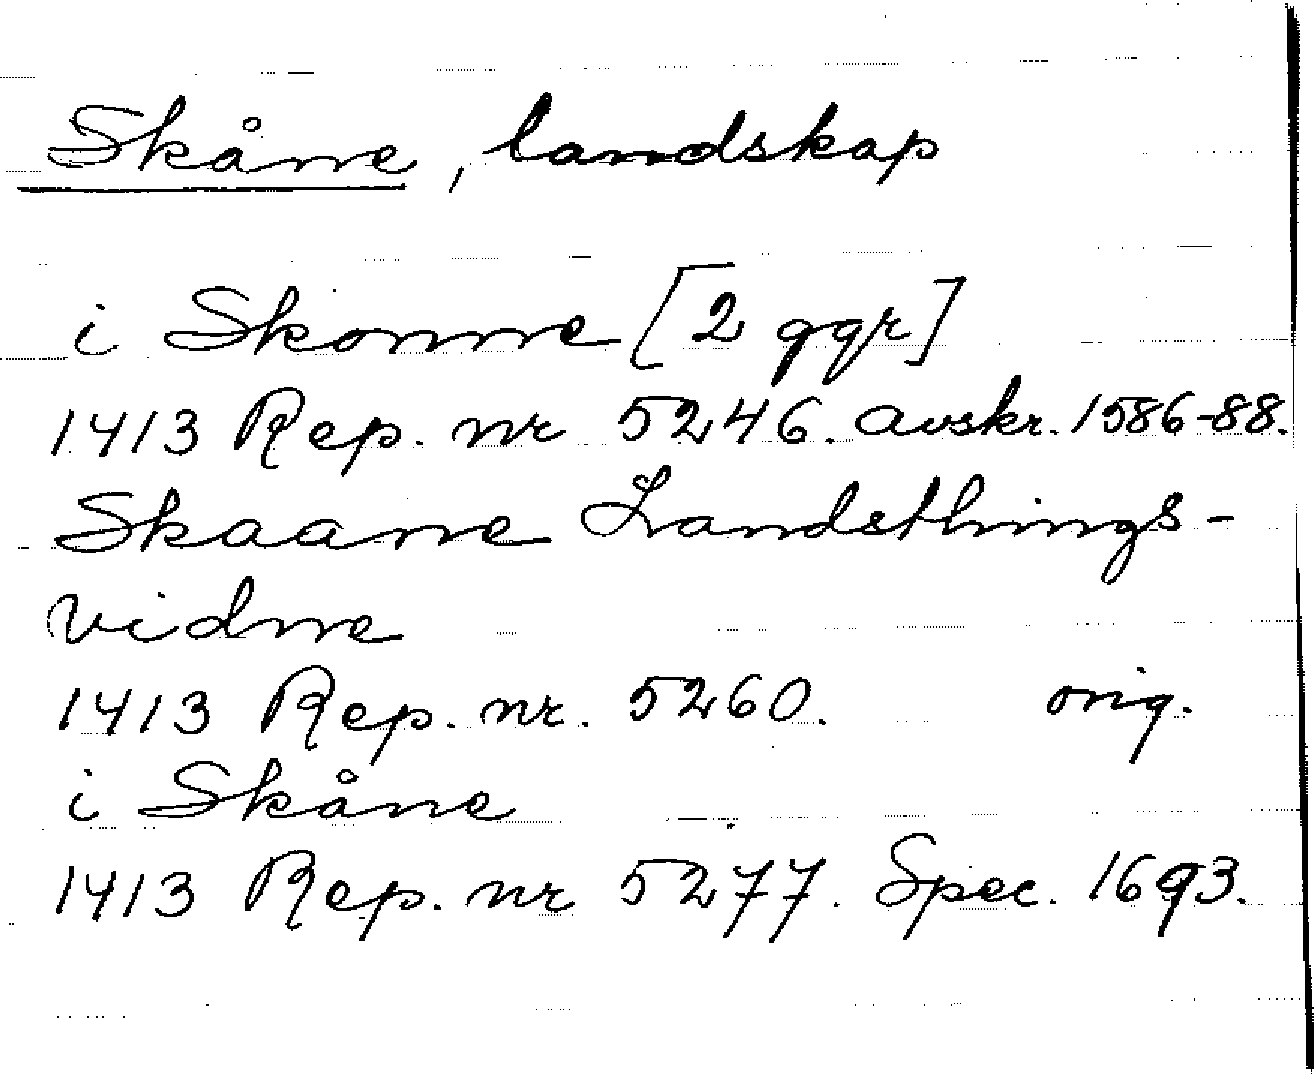 Skåne, landskap
i Skonne [2 ggr]
1413 Rep. nr 5246. avskr. 1586-88.
Skaane Landsthings-
vidne
1413 Rep. nr. 5260. orig.
i Skåne
1413 Rep. nr 5277. Spec. 1693.